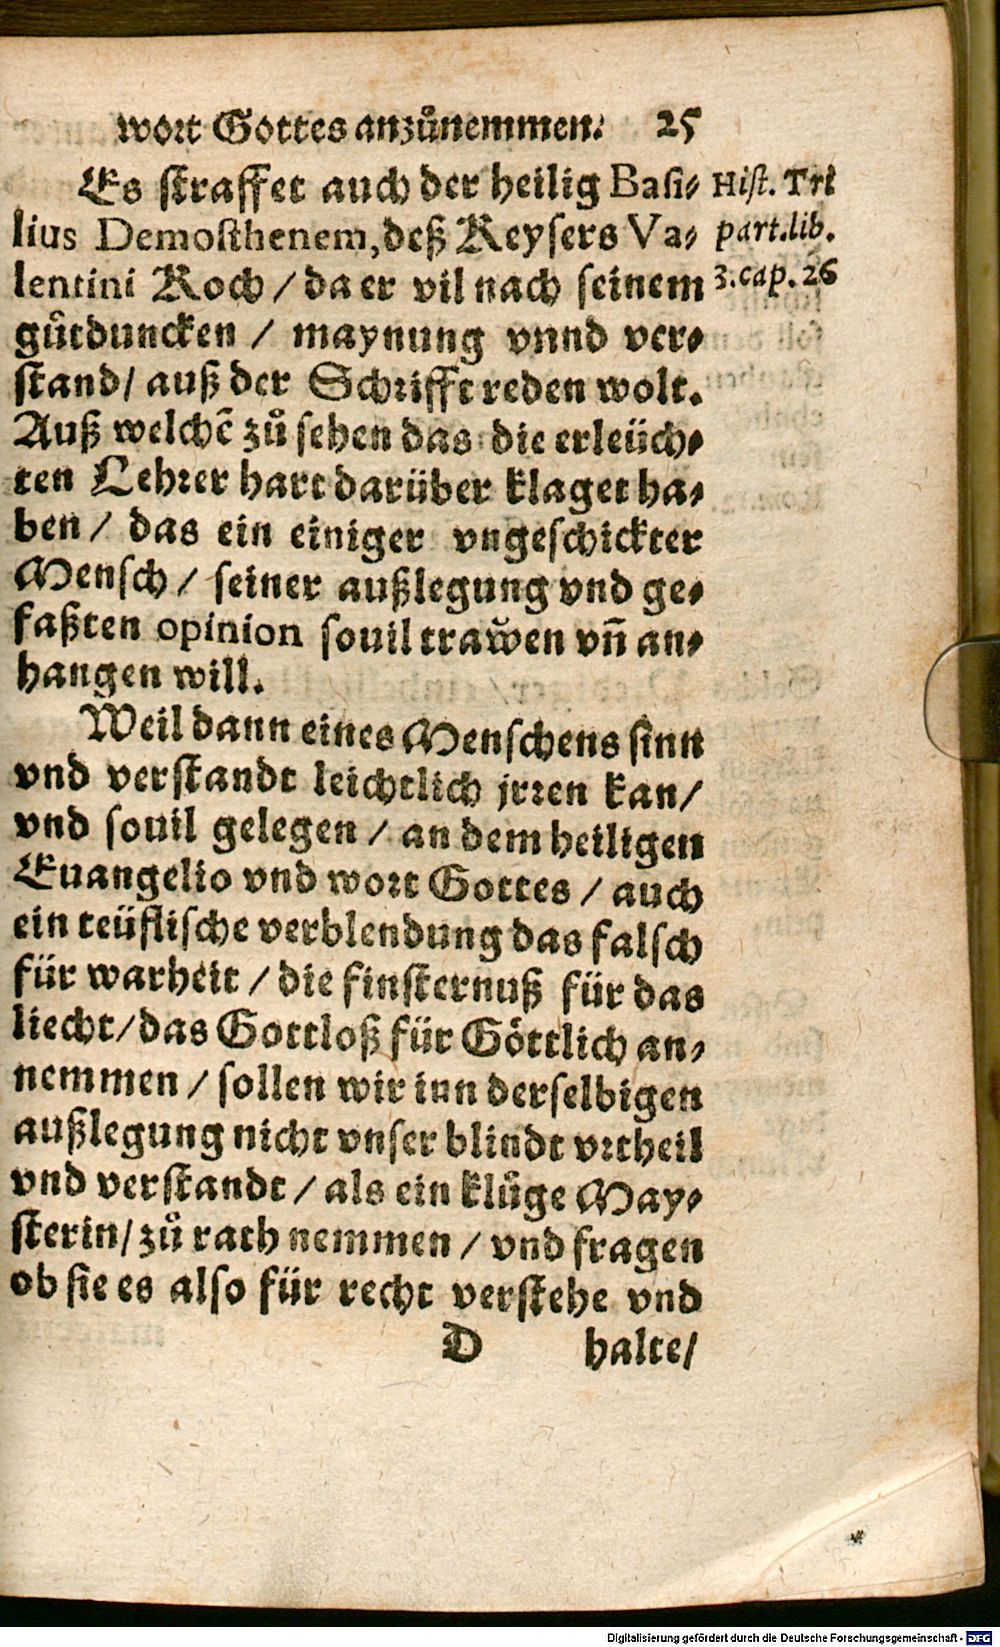 wort Gottes anzůnemmen. 25
Es straffet auch der heilig Basi-
lius Demosthenem, deß Keysers Va-
lentini Koch / da er vil nach seinem
gůtduncken / maynung vnnd ver-
stand / auß der Schrifft reden wolt.
Auß welchẽ zů sehen das die erleüch-
ten Lehrer hart darüber klaget ha-
ben / das ein einiger vngeschickter
Mensch / seiner außlegung vnd ge-
faßten opinion souil traẘen vñ an-
hangen will.
Weil dann eines Menschens sinn
vnd verstandt leichtlich jrren kan /
vnd souil gelegen / an dem heiligen
Euangelio vnd wort Gottes / auch
ein teüflische verblendung das falsch
für warheit / die finsternuß für das
liecht / das Gottloß für Göttlich an-
nemmen / sollen wir inn derselbigen
außlegung nicht vnser blindt vrtheil
vnd verstandt / als ein klůge May-
sterin / zů rath nemmen / vnd fragen
ob sie es also für recht verstehe vnd
D halte /
Hist. Tri
part. lib.
3. cap. 26
Digitalisierung gefördert durch die Deutsche Forschungsgemeinschaft - DFG